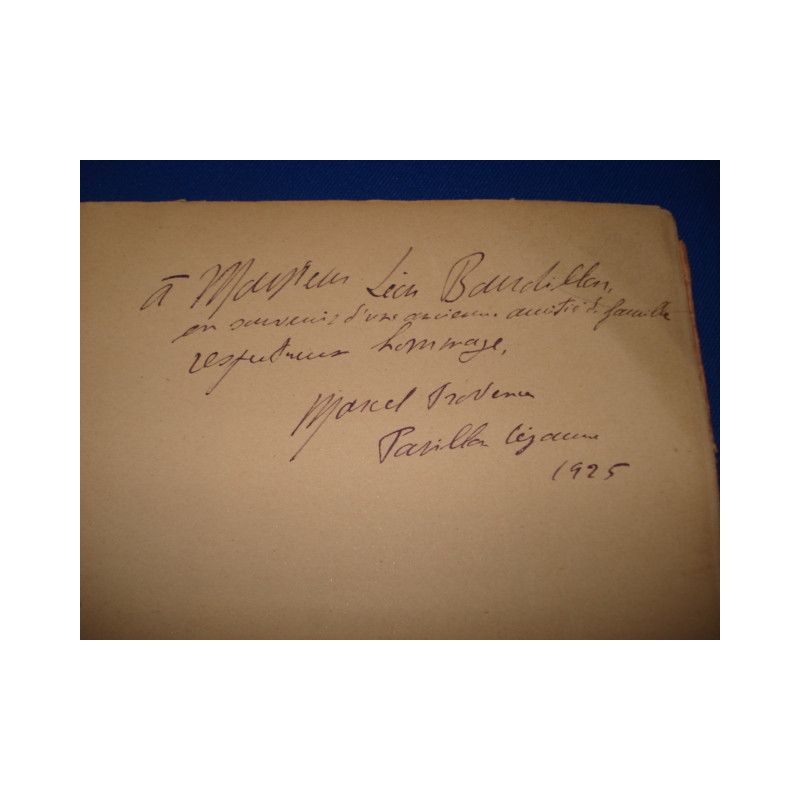 à Monsieur Léon Bourdillon,
en souvenir d'une ancienne amitié de famille
respectueux hommage,
Marcel Provence
Pavillon Cézanne
1925